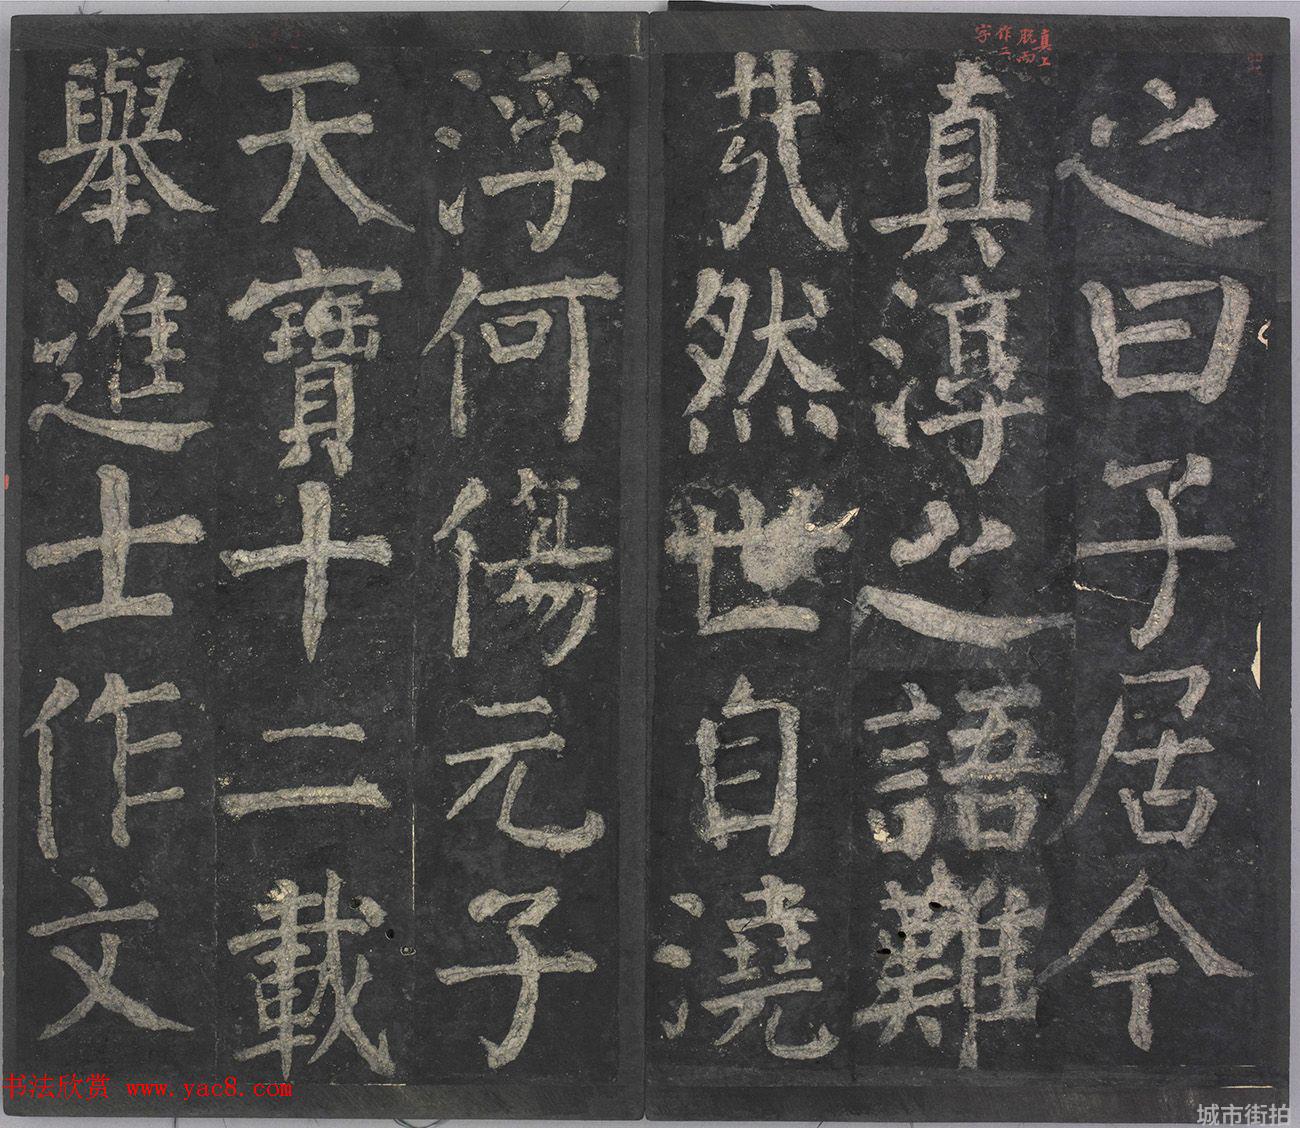 真上
脫而
作二
字
之曰子居今
真淳之語難
哉然世自澆
浮何傷元子
天寶十二載
舉進士作文
书法欣赏 www.yac8.com
城市街拍